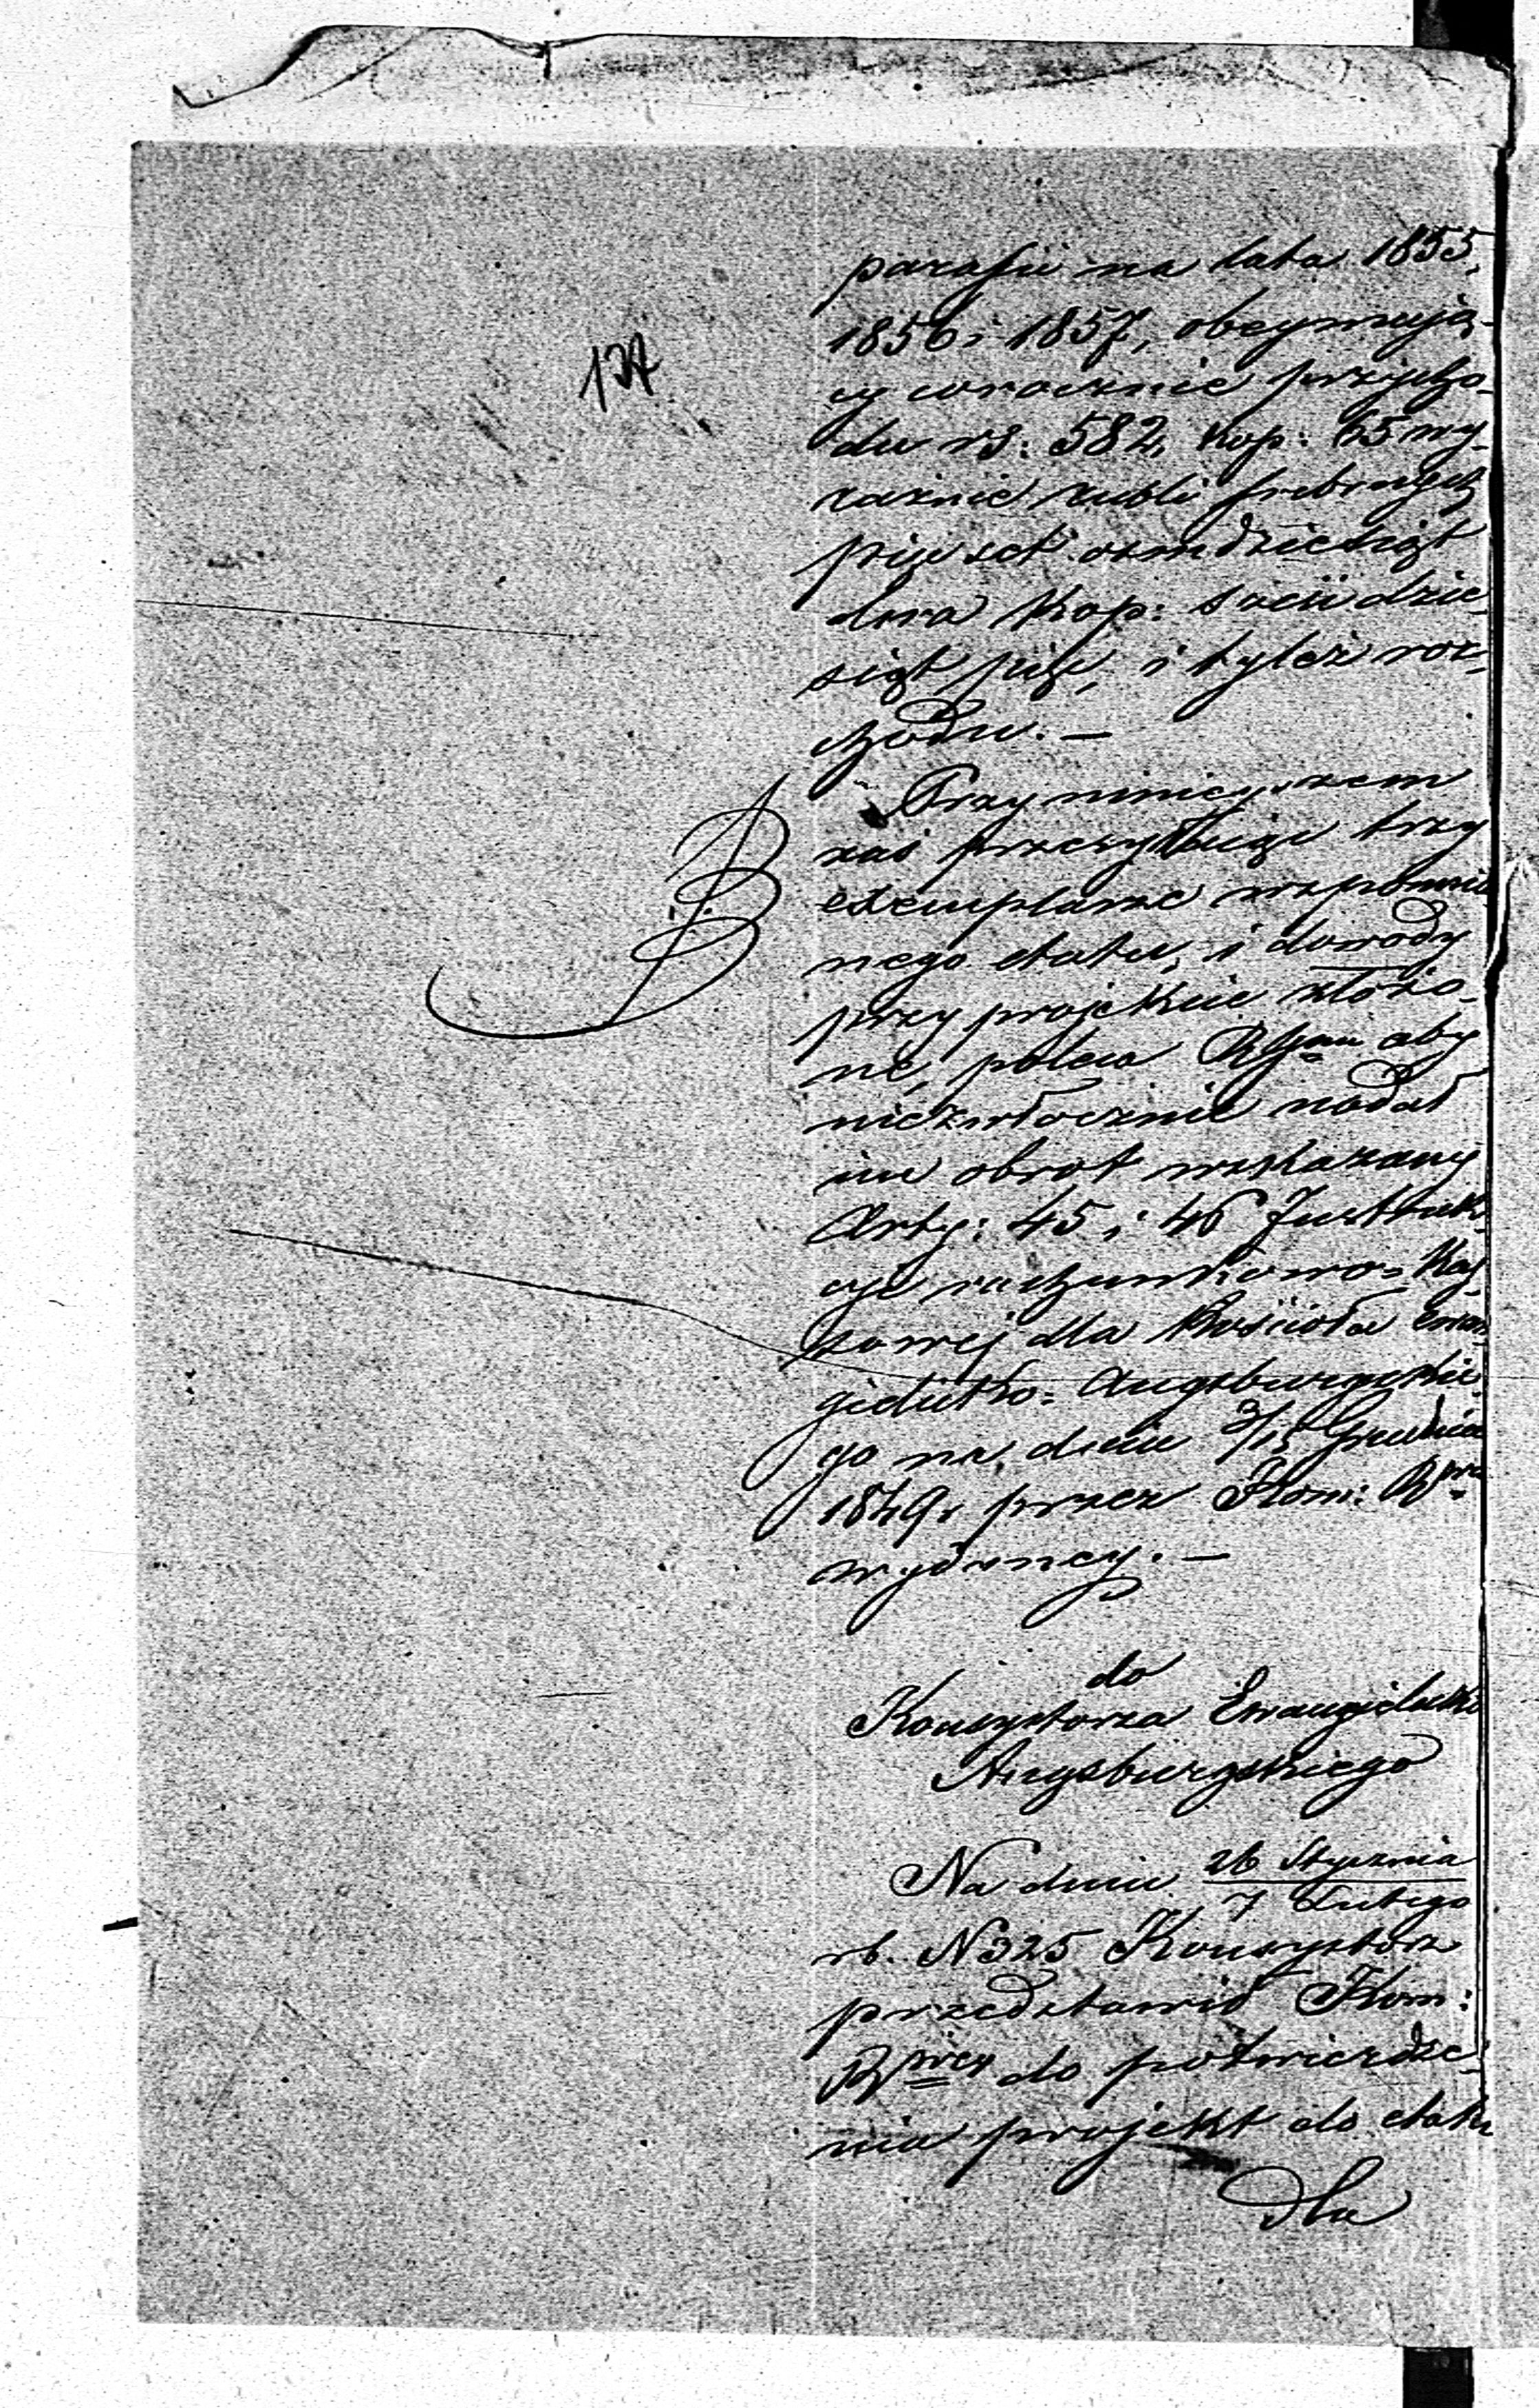 137
parafii na lata 1855,
1856 i 1857, obeymują-
cy corocznie przycho-
du rs: 582, kop: 65 wy-
raźnie rubli srebrnych
pięcset osmdziesiąt
dwa kop: sześćdzie-
siąt pięć, i tyleż roz-
chodu. —
Przy niniejszem
zaś przesyłając trzy
exemplarze wspomnio
nego etatu, i dowody
przy projekcie złożo-
ne, poleca aby
niezwłocznie nadał
im obrot wskazany
Arty: 45 i 46 Instruk-
cyi rachunkowo-Kas-
sowej dla Kościoła Ewan-
gielicko-Augsburgskie-
go na dniu 3/15 Grudnia
1849 r przez Kom: Rz
wydaney. —
do
Konsystorza Ewangelicko
Augsburgskiego
Na dniu 26 Stycznia
7 Lutego
rb. N 325 Konsystorz
przedstawił Kom:
Rz do potwierdze-
nia projekt do etatu
dla